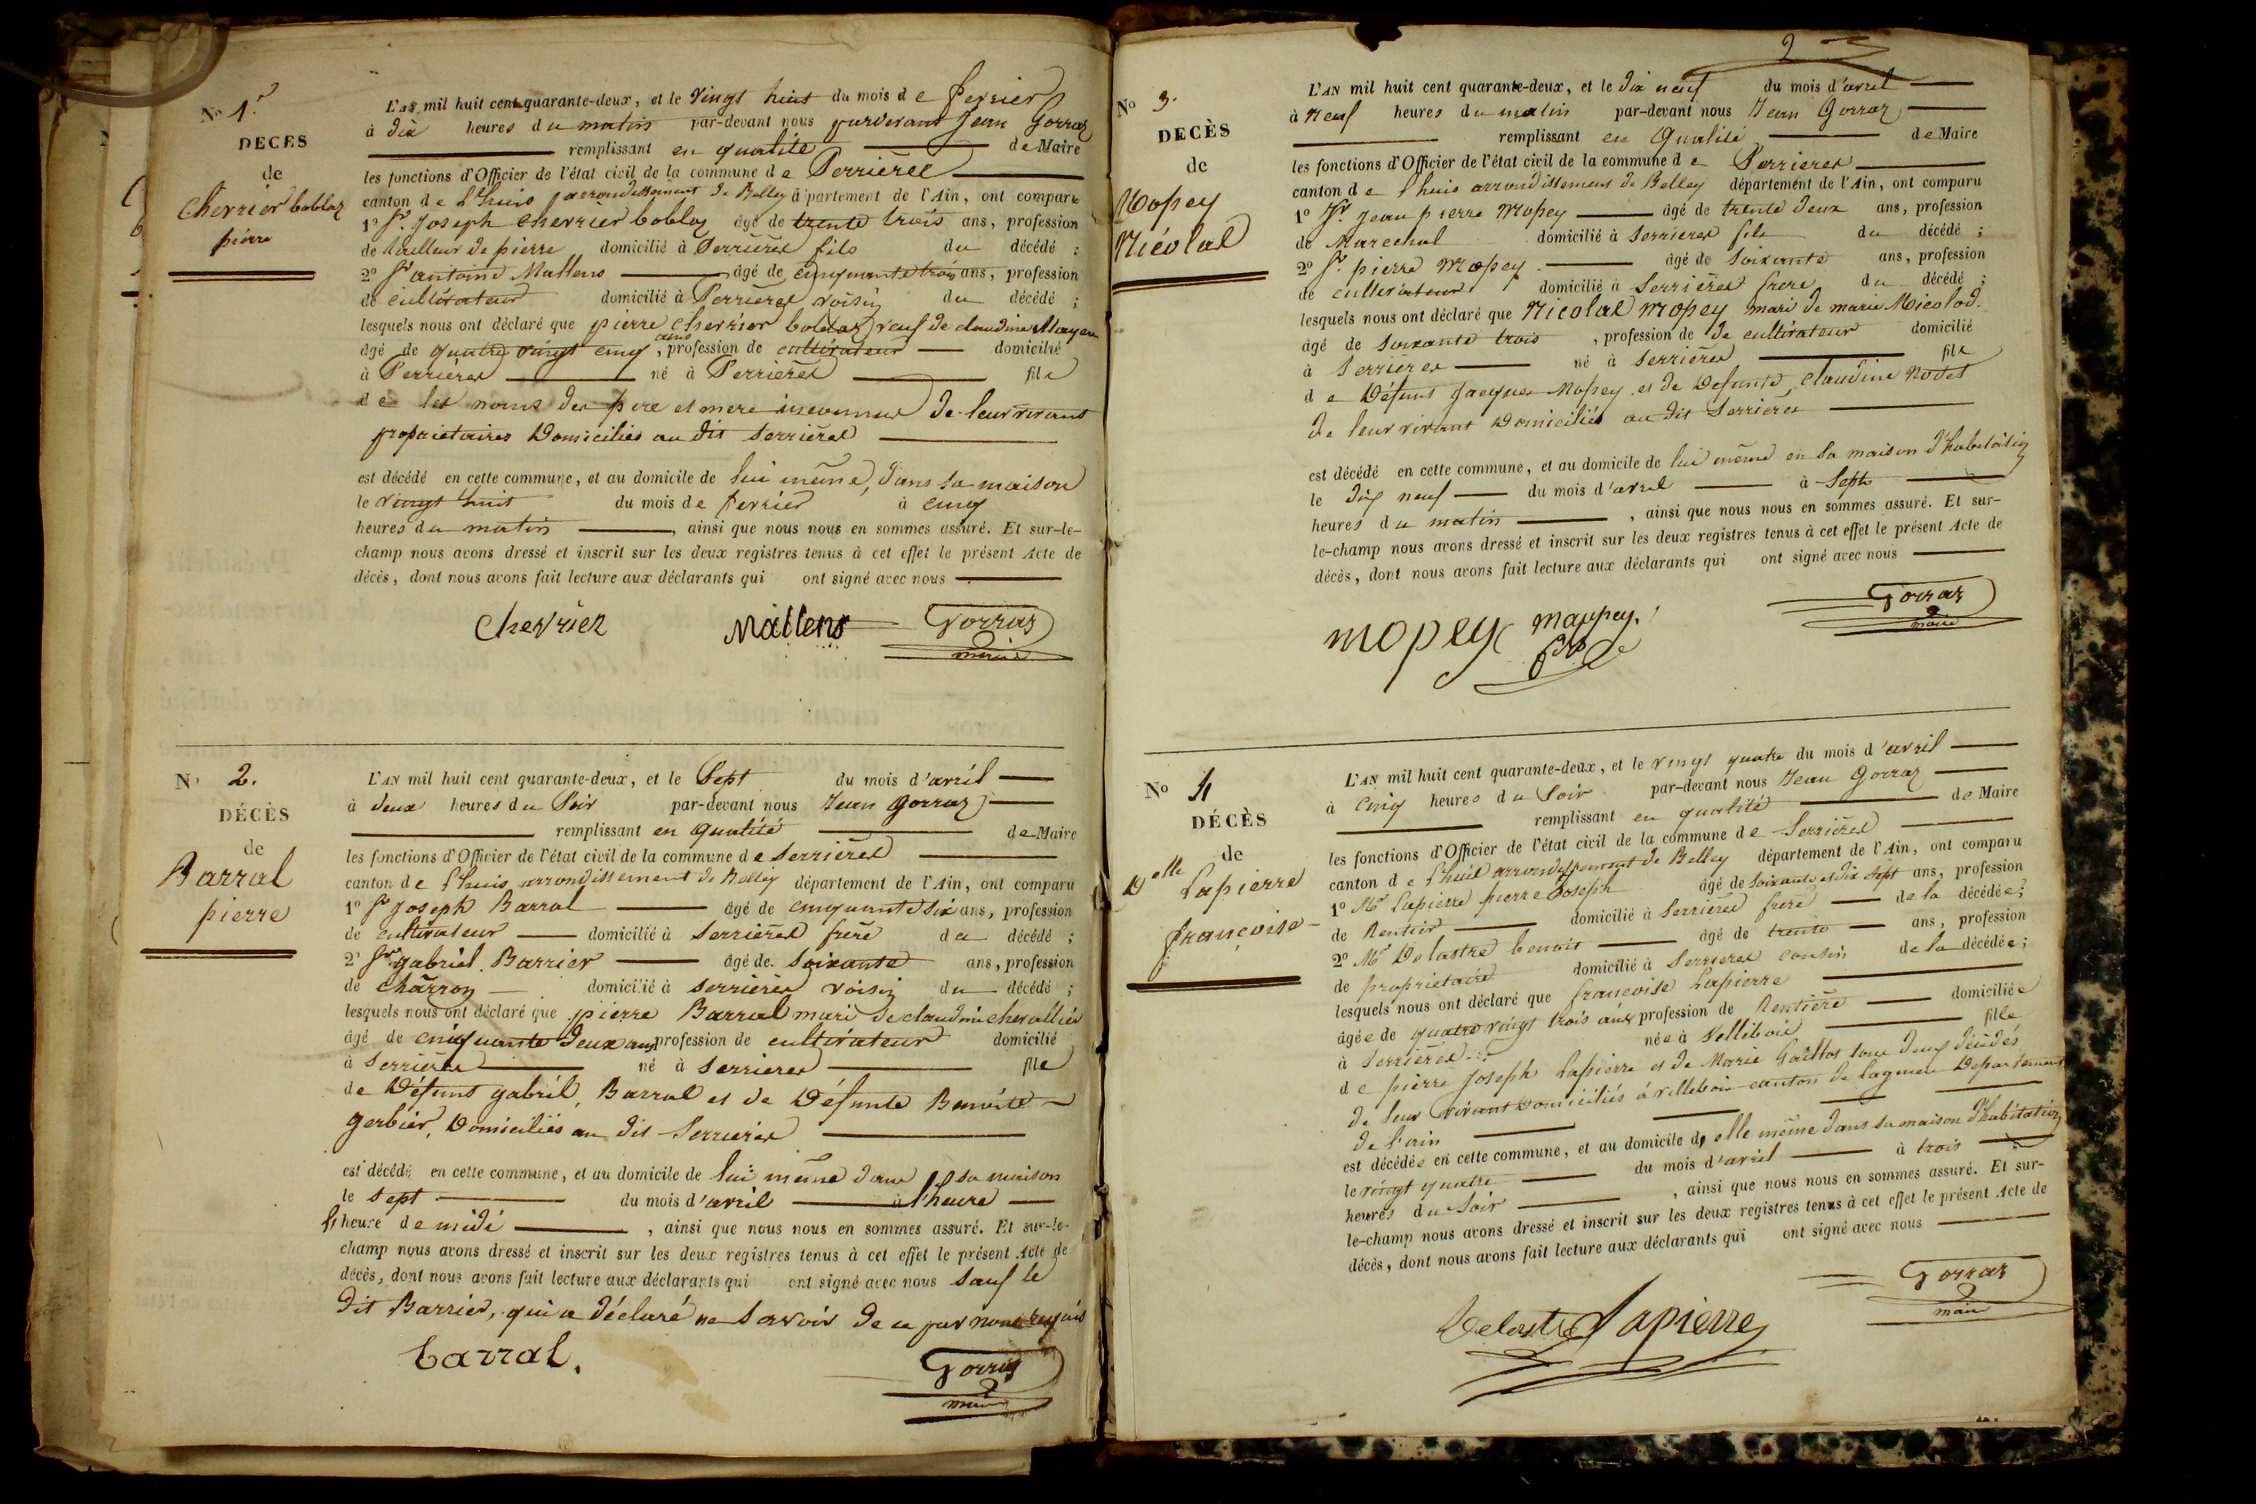 No 1er
DECES
de
Cherrier boblaz
pierre
L'AN mil huit cent quarante-deux, et le vingt huit du mois de fevrier
à dix heures du matin par-devant nous pardevant Jean Gorraz
remplissant en qualité de Maire
les fonctions d'Officier de l'état civil de la commune de Serrières
canton de L'huis arrondissement de Belley département de l'Ain, ont comparu
1o Sr. Joseph Cherrier boblaz âgé de trente trois ans, profession
de tailleur de pierre domicilié à Serrières fils du décédé ;
2o Sr antoine Mallens âgé de cinquante trois ans, profession
de cultivateur domicilié à Serrières voisin du décédé ;
lesquels nous ont déclaré que pierre Cherrier boblaz veuf de claudine
âgé de quatre vingt cinq ans, profession de cultivateur domicilié
à Serrières né à Serrières fils
de les noms des pere et mere inconnus de leur vivant
proprietaires Domiciliés au dit Serrières
est décédé en cette commune, et au domicile de lui même, dans sa maison
le vingt huit du mois de fevrier à cinq
heures du matin, ainsi que nous nous en sommes assuré. Et sur-le-
champ nous avons dressé et inscrit sur les deux registres tenus à cet effet le présent Acte de
décès, dont nous avons fait lecture aux déclarants qui ont signé avec nous
Chevrier Mallens Gorraz
maire
No 2.
DÉCÈS
de
Barral
pierre
L'AN mil huit cent quarante-deux, et le Sept du mois d'avril
à deux heures du Soir par-devant nous Jean Gorraz
remplissant en qualité de Maire
les fonctions d'Officier de l'état civil de la commune de Serrières
canton de Lhuis arrondissement de Belley département de l'Ain, ont comparu
1o Sr Joseph Barral âgé de cinquante six ans, profession
de cultivateur domicilié à Serrières frere du décédé ;
2o Sr gabriel Barrier âgé de Soixante ans, profession
de charron domicilié à Serrières voisin du décédé ;
lesquels nous ont déclaré que pierre Barral mari de claudine chevallier
âgé de cinquante deux ans profession de cultivateur domicilié
à Serrières né à Serrieres fils
de Défunt gabriel Barral et de Défunte Benoite
gerbier, Domiciliés au dit Serrières
est décédé en cette commune, et au domicile de lui même dans sa maison
le sept du mois d'avril à l'heure
heure de midi, ainsi que nous nous en sommes assuré. Et sur-le-
champ nous avons dressé et inscrit sur les deux registres tenus à cet effet le présent Acte de
décès, dont nous avons fait lecture aux déclarants qui ont signé avec nous sauf le
dit Barrier, qui a déclaré ne savoir de ce par nous requis
barral. Gorraz
maire
2
No 3.
DECÈS
de
Mopey
Nicolas
L'AN mil huit cent quarante-deux, et le dix neuf du mois d'avril
à neuf heures du matin par-devant nous Jean Gorraz
remplissant en Qualité de Maire
les fonctions d'Officier de l'état civil de la commune de Serrieres
canton de Lhuis arrondissement de Belley département de l'Ain, ont comparu
1o Sr. Jean pierre Mopey âgé de trente deux ans, profession
de Marechal domicilié à Serrieres fils du décédé ;
2o Sr. pierre Mopey âgé de Soixante ans, profession
de cultivateur domicilié à Serrières frere du décédé ;
lesquels nous ont déclaré que Nicolas Mopey mari de marie Micolod.
âgé de soixante trois, profession de de cultivateur domicilié
à Serrieres né à Serrières fils
de Défunt Jacques Mopey et de Defunte claudine Nodet
de leur vivant Domiciliés au dit Serrières
est décédé en cette commune, et au domicile de lui même en sa maison d'habitation
le dix neuf du mois d'avril à Sept
heures du matin, ainsi que nous nous en sommes assuré. Et sur-
le-champ nous avons dressé et inscrit sur les deux registres tenus à cet effet le présent Acte de
décès, dont nous avons fait lecture aux déclarants qui ont signé avec nous
mopey mappey. Gorraz
maire
No 4
DÉCÈS
de
Delle Lapierre
françoise
L'AN mil huit cent quarante-deux, et le vingt quatre du mois d'avril
à cinq heures du Soir par-devant nous Jean Gorraz
remplissant en qualité de Maire
les fonctions d'Officier de l'état civil de la commune de Serrières
canton de Lhuis arrondissement de Belley département de l'Ain, ont comparu
1o Mr Lapierre pierre Joseph âgé de soixante et dix sept ans, profession
de Rentier domicilié à Serrières frere de la décédée ;
2o Mr Delastre benoit âgé de trente ans, profession
de proprietaire domicilié à Serrieres cousin de la décédée ;
lesquels nous ont déclaré que françoise Lapierre
âgée de quatre vingt trois ans profession de Rentière domiciliée
à Serrières née à Villebois fille
de pierre Joseph Lapierre et de Marie Gaillot tous deux décédés
de leur vivant Domiciliés à villebois canton de lagnieu Departement
de l'ain
est décédée en cette commune, et au domicile d'elle même dans sa maison d'habitation
le vingt quatre du mois d'avril à trois
heures du Soir, ainsi que nous nous en sommes assuré. Et sur-
le-champ nous avons dressé et inscrit sur les deux registres tenus à cet effet le présent Acte de
décès, dont nous avons fait lecture aux déclarants qui ont signé avec nous
Delastre Lapierre Gorraz
maire